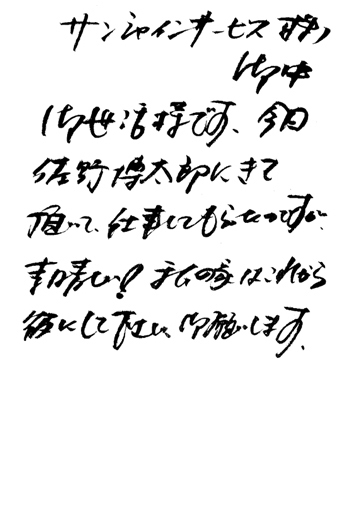 サンシャインサービス様
御中
御世話様です、今日
佐野博太郎にきて
頂いて、仕事してもらったのですが、
素晴しい! 私の家はこれから
彼にして下さい、御願いします。